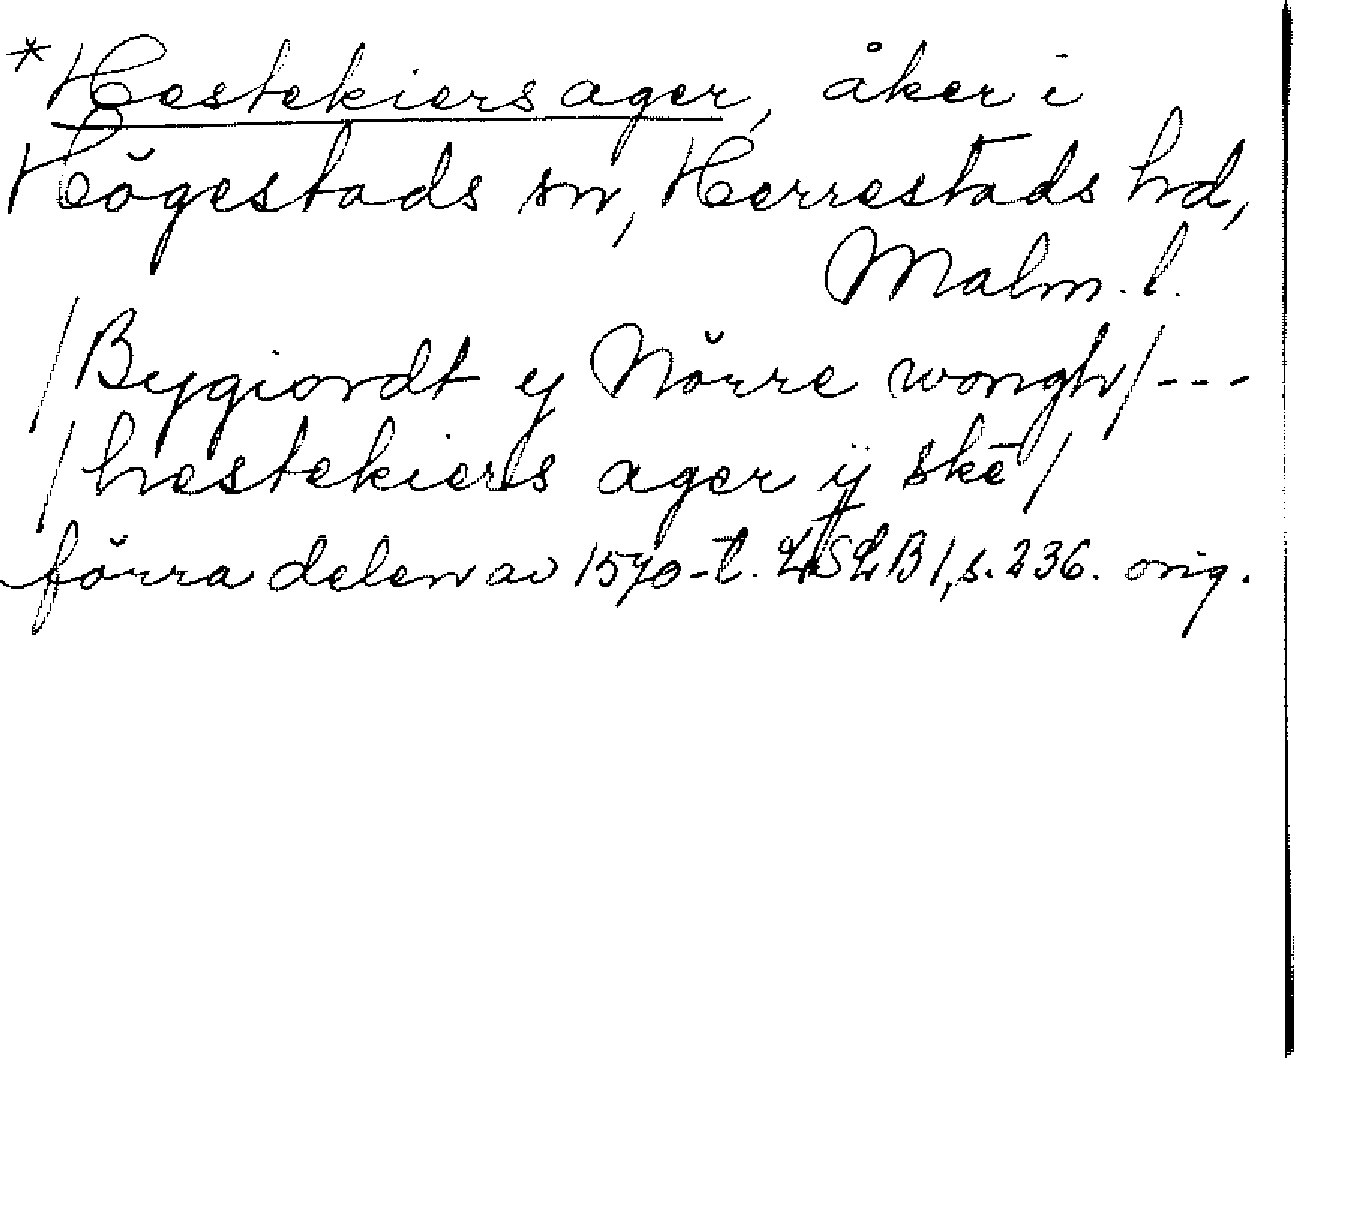 *Hestekiers ager, åker i
Högestads sn, Herrestads hd,
Malm. l.
/Bygiordt y Nörre wongh/---
/hestekiers ager ij skē/
förra delen av 1570-t. LSLB1, s. 236. orig.